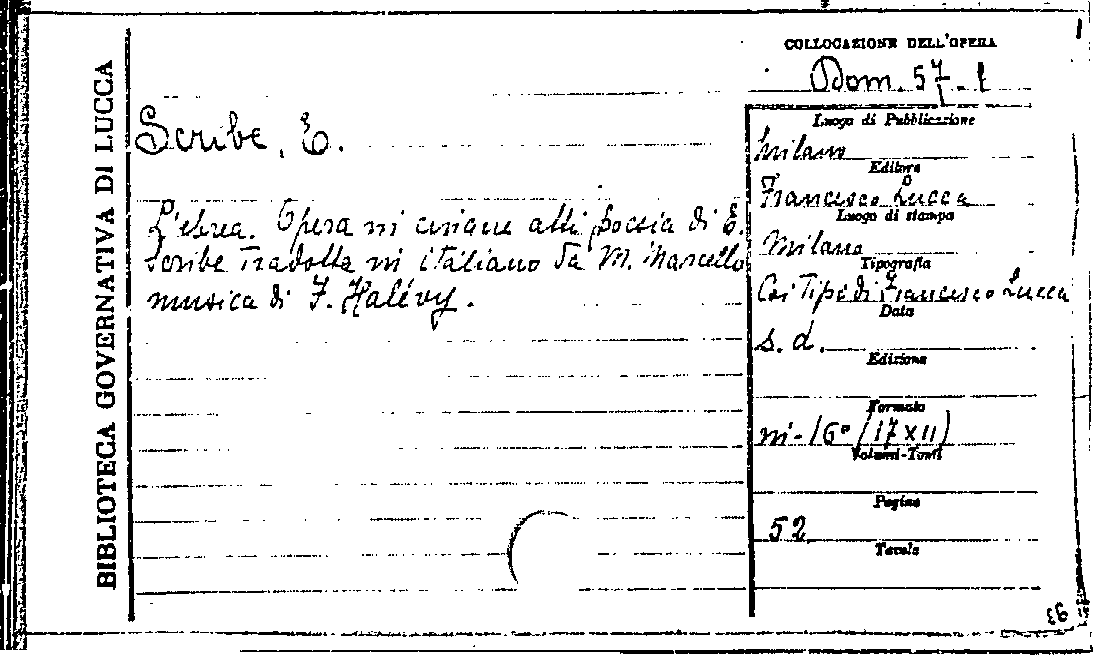 BIBLIOTECA GOVERNATIVA DI LUCCA
COLLOCAZIONE DELL'OPERA
Dom. 57-1
Scribe, E.
L'ebrea. Opera in cinque atti poesia di E.
Scribe tradotta in italiano da M. Marcello
musica di F. Halévy.
Luogo di Pubblicazione
Milano
Editore
Francesco Lucca
Luogo di stampa
Milano
Tipografia
Coi Tipi di Francesco Lucca
Data
s. d.
Edizione
Formato
in-16° (17x11)
Volumi-Tomi
Pagine
52
Tavole